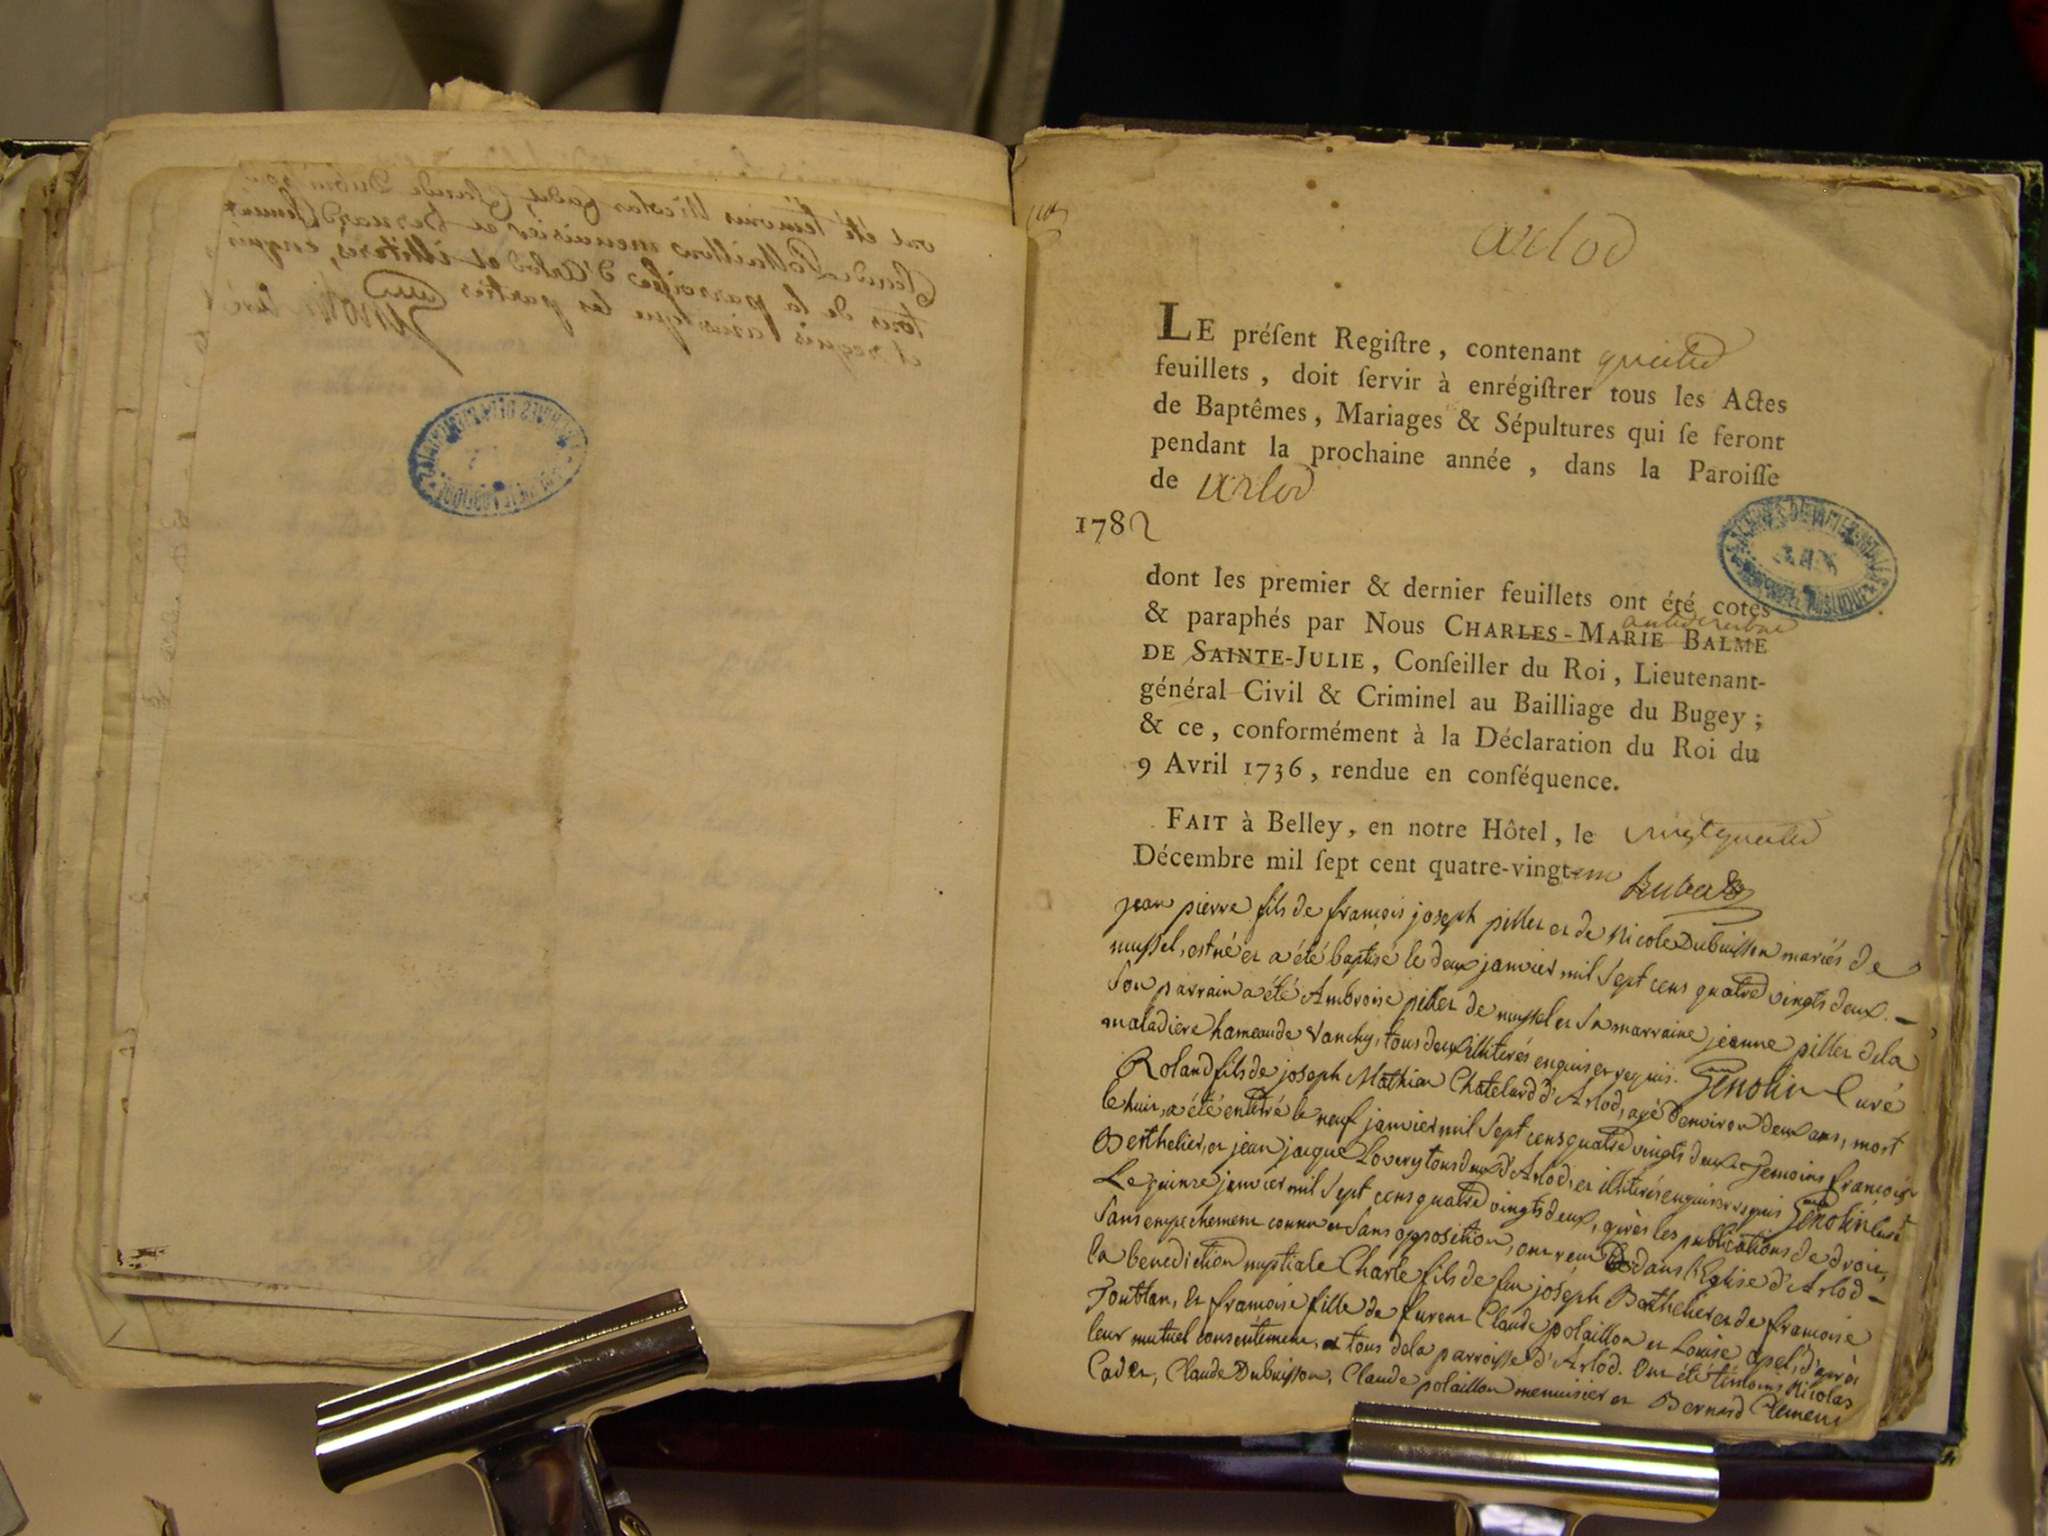 arlod
LE préſent Regiſtre, contenant quatre
feuillets, doit ſervir à enrégiſtrer tous les Actes
de Baptêmes, Mariages & Sépultures qui ſe feront
pendant la prochaine année, dans la Paroiſſe
de arlod
1782
dont les premier & dernier feuillets ont été cotés
& paraphés par Nous CHARLES-MARIE BALME
DE SAINTE-JULIE, Conſeiller du Roi, Lieutenant-
général Civil & Criminel au Bailliage du Bugey;
& ce, conformément à la Déclaration du Roi du
9 Avril 1736, rendue en conſéquence.
FAIT à Belley, en notre Hôtel, le vingtquatre
Décembre mil ſept cent quatre-vingt-un
jean pierre fils de françois joseph piller et de Nicole Dubuisson mariés de
mussel, est né et a été baptisé le deux janvier mil sept cens quatre vingts deux. -
Son parrain a été Ambroise piller de mussel et Sa marraine jeanne piller dela
maladiere hameau de Vanchy, tous deux illiterés enquis et requis. Genolin Curé
Roland fils de joseph Mathieu Chatelard d'Arlod, agé d'environ deux ans, mort
le huit, a été enterré le neuf janvier mil Sept cens quatre vingts deux. Temoins françois
Berthelier, et jean jacque Lovery tous deux d'Arlod, et illiterés enquis et requis Genolin Curé
Le quinze janvier mil Sept cens quatre vingts deux, après les publications de droit,
Sans empechement connu et Sans opposition, ont reçu dans l'Eglise d'Arlod -
la benediction nuptiale Charle fils de feu joséph Berthelier et de françoise
Foublan, et françoise fille de furent Claude polaillon et Louise apel, d'après
leur mutuel consentement, tous dela parroisse d'Arlod. Ont été témoins Nicolas
Cadet, Claude Dubuisson, Claude polaillon menuisier et Bernard Clement